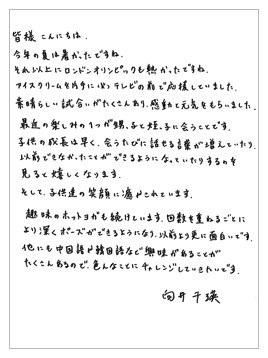 皆様こんにちは。
今年の夏は暑かったですね。
それ以上にロンドンオリンピックも熱かったですね。
アイスクリームを片手に必ずテレビの前で応援していました。
素晴らしい試合いがたくさんあり、感動と元気をもらいました。
最近の楽しみの1つが甥っ子と姪っ子に会うことです。
子供の成長は早く、会うたびに話せる言葉が増えていたり
以前できなかったことができるようになっていたりするのを
見ると嬉しくなります。
そして、子供達の笑顔に癒やされています。
趣味のホットヨガも続けています。回数を重ねるごとに
より深くポーズができるようになり、以前より更に面白いです。
他にも中国語や韓国語など興味があることが
たくさんあるので、色んなことにチャレンジしていきたいです。
向井千瑛